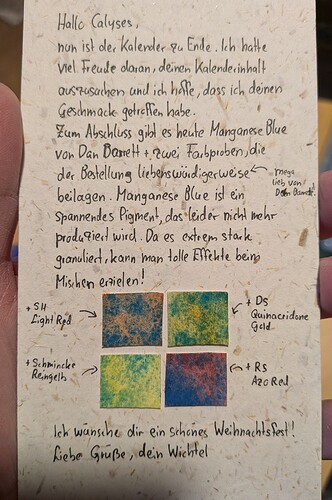 Hallo Calyses,
nun ist der Kalender zu Ende. Ich hatte
viel Freude daran, deinen Kalenderinhalt
auszusuchen und ich hoffe, dass ich deinen
Geschmack getroffen habe.
Zum Abschluss gibt es heute Manganese Blue
von Dan Barett + zwei Farbproben, die
der Bestellung liebenswürdigerweise
mega
lieb von
Dan Barett!
beilagen. Manganese Blue ist ein
spannendes Pigment, das leider nicht mehr
produziert wird. Da es extrem stark
granuliert, kann man tolle Effekte beim
Mischen erzielen!
+ SH
Light Red
+ DS
Quinacridone
Gold
+ Schmincke
Reingelb
+ RS
Azo Red
Ich wünsche dir ein schönes Weihnachtsfest!
Liebe Grüße, dein Wichtel